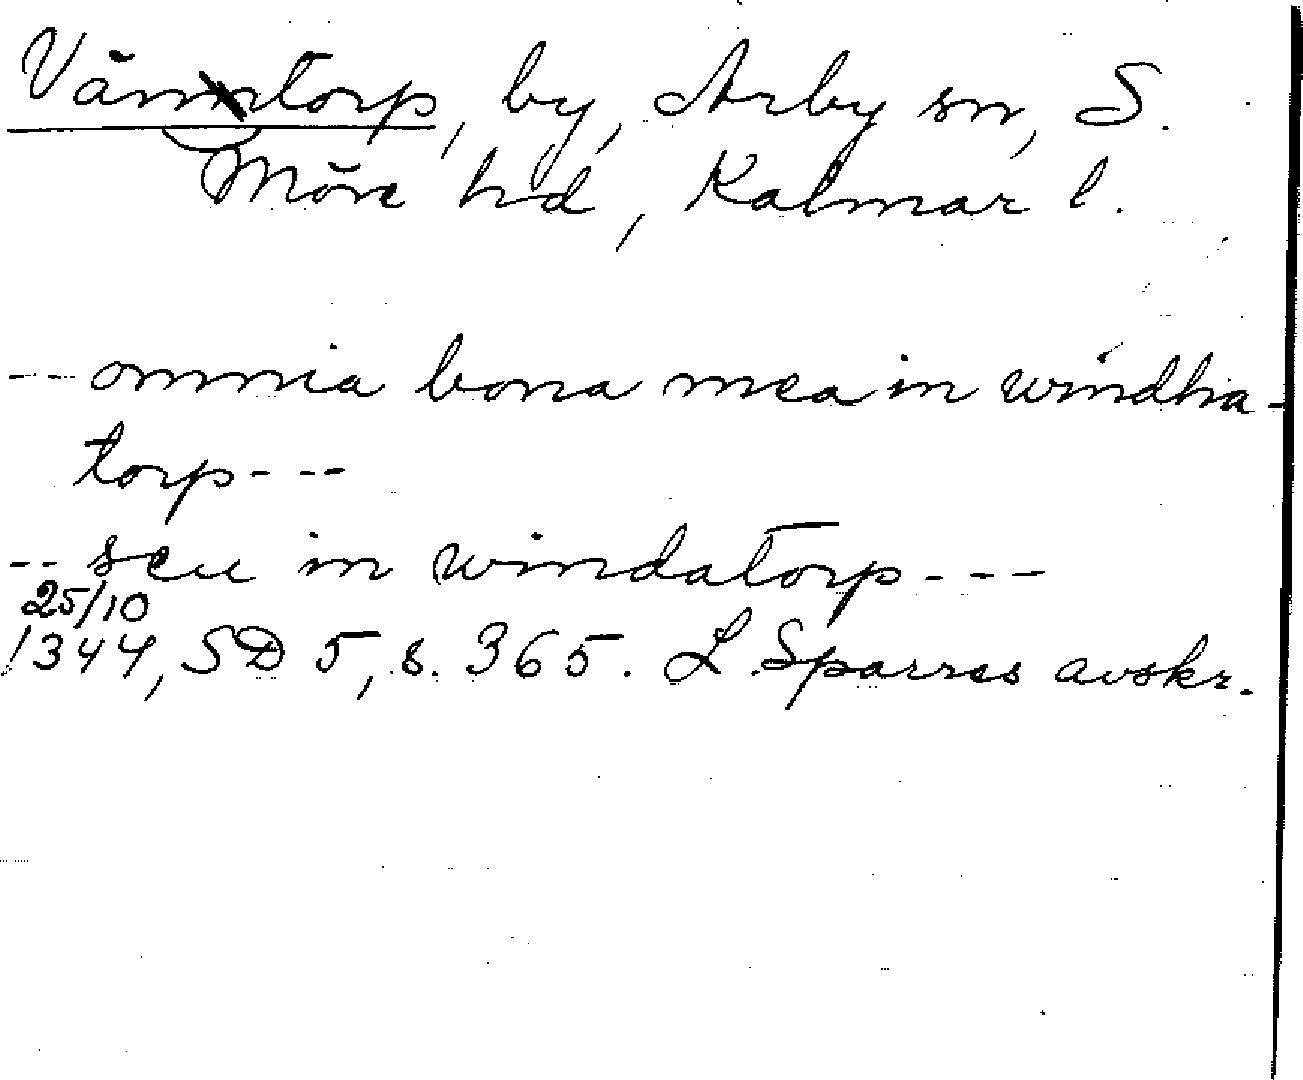 Väntorp, by, Arby sn, S.
Möre hd, Kalmar l.
-- omnia bona mea in windha-
torp ---
-- seu in windatorp ---
25/10
1344, SD 5, s. 365. L Sparres avskr.